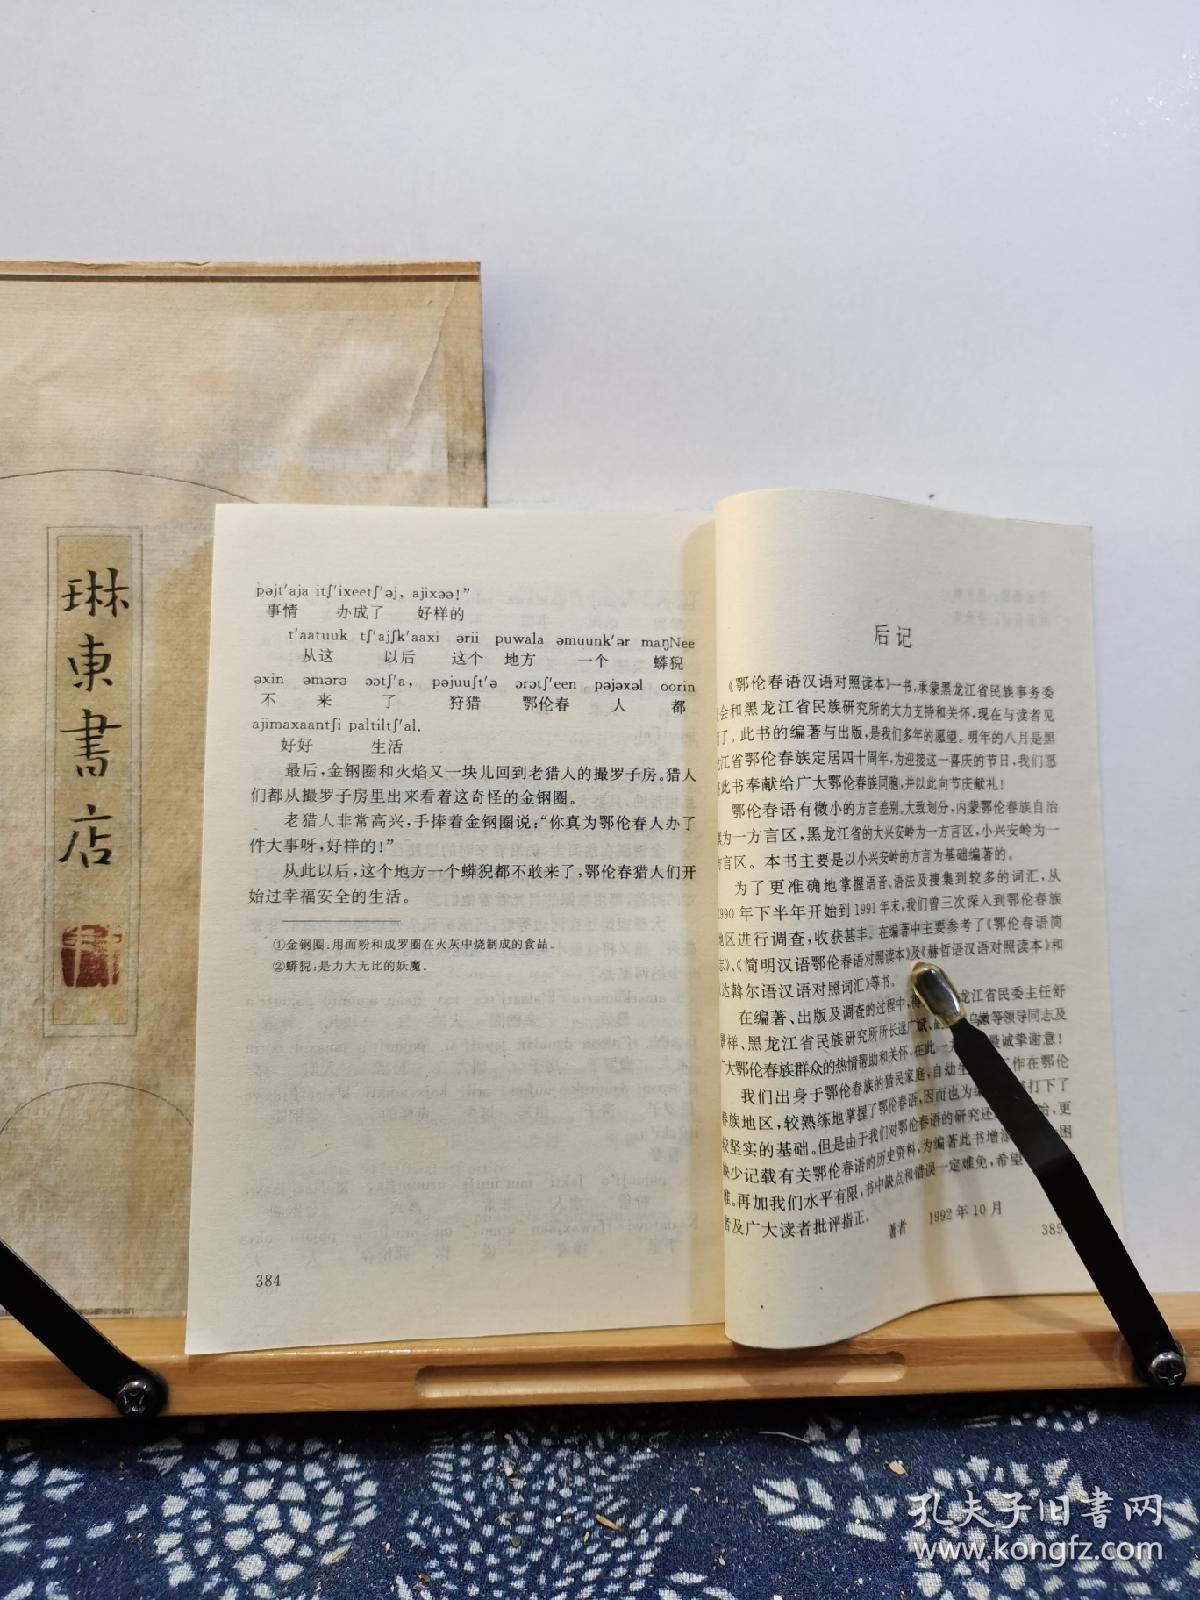 琳東書店
pəjt'aja itʃ'ixeetʃ'əj, ajixəə!”
事情 办成了 好样的
t'aatuuk tʃ'ajʃk'aaxi ərii puwala əmuunk'ər maŋNee
从这 以后 这个 地方 一个 蟒猊
əxin əmərə ɔɔtʃ'a, pəjuuʃt'ə ərətʃ'een pəjəxəl oorin
不 来 了 狩猎 鄂伦春 人 都
ajimaxaantʃi paltiltʃ'al.
好好 生活
最后，金钢圈和火焰又一块儿回到老猎人的撮罗子房。猎人
们都从撮罗子房里出来看着这奇怪的金钢圈。
老猎人非常高兴，手捧着金钢圈说：“你真为鄂伦春人办了
件大事呀，好样的！”
从此以后，这个地方一个蟒猊都不敢来了，鄂伦春猎人们开
始过幸福安全的生活。
①金钢圈：用面粉和成罗圈在火灰中烧制成的食品。
②蟒猊：是力大无比的妖魔.
384
后记
《鄂伦春语汉语对照读本》一书，承蒙黑龙江省民族事务委
会和黑龙江省民族研究所的大力支持和关怀，现在与读者见
了。此书的编著与出版，是我们多年的愿望。明年的八月是黑
江省鄂伦春族定居四十周年，为迎接这一喜庆的节日，我们愿
此书奉献给广大鄂伦春族同胞，并以此向节庆献礼！
鄂伦春语有微小的方言差别。大致划分，内蒙鄂伦春族自治
为一方言区，黑龙江省的大兴安岭为一方言区，小兴安岭为一
言区。本书主要是以小兴安岭的方言为基础编著的。
为了更准确地掌握语音、语法及搜集到较多的词汇，从
990年下半年开始到1991年末，我们曾三次深入到鄂伦春族
地区进行调查，收获甚丰。在编著中主要参考了《鄂伦春语简
志》、《简明汉语鄂伦春语对照读本》及《赫哲语汉语对照读本》和
达斡尔语汉语对照词汇》等书。
在编著、出版及调查的过程中，得 龙江省民委主任舒
祥、黑龙江省民族研究所所长 乌 等领导同志及
广大鄂伦春族群众的热情帮助和关怀，在此一 最诚挚谢意！
我们出身于鄂伦春族的猎民家庭，自幼生 工作在鄂伦
春族地区，较熟练地掌握了鄂伦春语，因而也为编 打下了
较坚实的基础。但是由于我们对鄂伦春语的研究还 始，更
缺少记载有关鄂伦春语的历史资料，为编著此书增添 困
难。再加我们水平有限，书中缺点和错误一定难免，希望
者及广大读者批评指正.
著者 1992年10月
385
孔夫子旧书网
www.kongfz.com